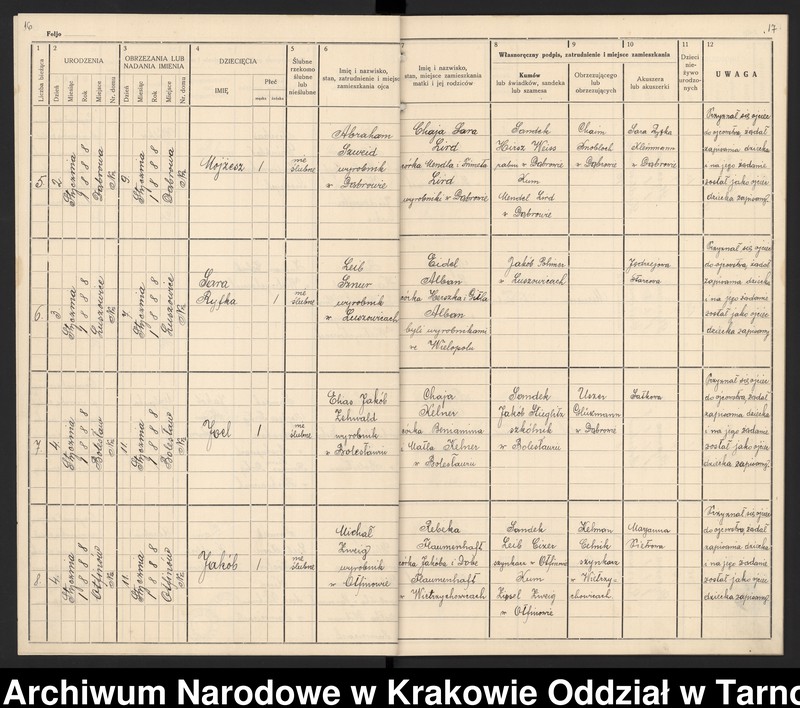 16
17
Foljo
1 2 3 4 5 6 7 8 9 10 11 12
Liczba bieżąca
URODZENIA
Dzień Miesiąc Rok Miejsce Nr. domu
OBRZEZANIA LUB NADANIA IMIENIA
Dzień Miesiąc Rok Miejsce Nr. domu
DZIECIĘCIA
IMIĘ
Płeć
męska żeńska
Ślubne rzekomo ślubne lub nieślubne
Imię i nazwisko, stan, zatrudnienie i miejsce zamieszkania ojca
Imię i nazwisko, stan, miejsce zamieszkania matki i jej rodziców
Własnoręczny podpis, zatrudnienie i miejsce zamieszkania
Kumów lub świadków, sandeka lub szamesa
Obrzezającego lub obrzezujących
Akuszera lub akuszerki
Dzieci nieżywo urodzonych
UWAGA
5.
2. Stycznia 1 8 8 8 Dąbrowa No
9. Stycznia 1 8 8 8 Dąbrowa No
Mojżesz
1
nie ślubne
Abraham
Szweid
wyrobnik
w Dąbrowie
Chaja Sara
Lird
córka Mendla i
Lird
wyrobniki w Dąbrowie
Sandek
Hersz Weiss
rabin w Dąbrowie
Kum
Mendel Lird
w Dąbrowie
Chaim
Knobloch
w Dąbrowie
Sara Zyska
Kleinmann
w Dąbrowie
Przyznał się ojciec
do ojcowstwa, żądał
zapisania dziecka
i na jego żądanie
został jako ojciec
dziecka zapisany.
6.
3 Stycznia 1 8 8 8 Luszowice No
7 Stycznia 1 8 8 8 Luszowice No
Sara
Ryfka
1
nie ślubne
Leib
Sznur
wyrobnik
w Luszowicach
Eidel
Alban
córka Herszka i Gitla
Alban
byli wyrobnikami
we Wielopolu
Jakób
w Luszowicach
Przyznał się ojciec
do ojcowstwa, żądał
zapisania dziecka
i na jego żądanie
został jako ojciec
dziecka zapisany
7.
4. Stycznia 1 8 8 8 Bolesław No
11. Stycznia 1 8 8 8 Bolesław No
Joel
1
nie ślubne
Elias Jakób
Zehwald
wyrobnik
w Bolesławiu
Chaja
Kelner
córka Beniamina
i Malla Kelner
w Bolesławiu
Sandek
Jakób Stieglitz
szkólnik
w Bolesławiu
Uszer
Glüxmann
w Dąbrowie
Salkowa
Przyznał się ojciec
do ojcowstwa, żądał
zapisania dziecka
i na jego żądanie
został jako ojciec
dziecka zapisany.
8.
4. Stycznia 1 8 8 8 Otfinów No
11. Stycznia 1 8 8 8 Otfinów No
Jakób
1
nie ślubne
Michał
Zweig
wyrobnik
w Otfinowie
Rebeka
Flaumenhaft
córka Jakóba i Dobe
Flaumenhaft
w Wietrzychowicach
Sandek
Leib Eixer
szynkarz w Otfinowie
Kum
Zysel Zweig
w Otfinowie
Zelman
Celnik
szynkarz
w Wietrzychowicach
Maryanna
Przyznał się ojciec
do ojcowstwa, żądał
zapisania dziecka
i na jego żądanie
został jako ojciec
dziecka zapisany.
Archiwum Narodowe w Krakowie Oddział w Tarno